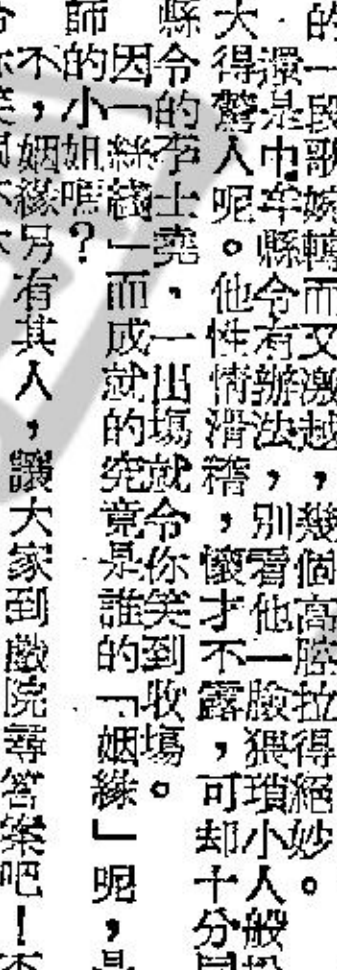 的一段歌婉轉而又激越，幾個高腔拉得絕妙。
還是中牟縣令有辦法，別看他一臉猥瑣小人般
大得驚人呢。他性情滑稽，懷才不露，可却十分
縣令的李士堯，一出場就令你笑到收場。
因「絲綫」而成就的究竟是誰的「姻緣」呢，是
師的小姐嗎？
不，姻緣另有其人，讓大家到戲院尋答案吧！